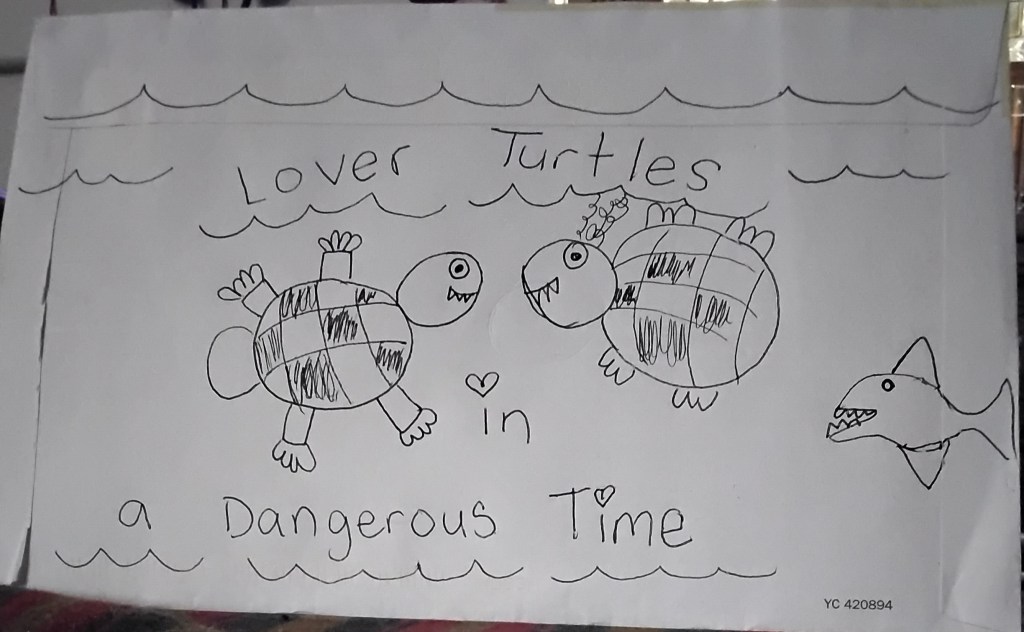 Lover Turtles
in
a Dangerous Time
YC 420894